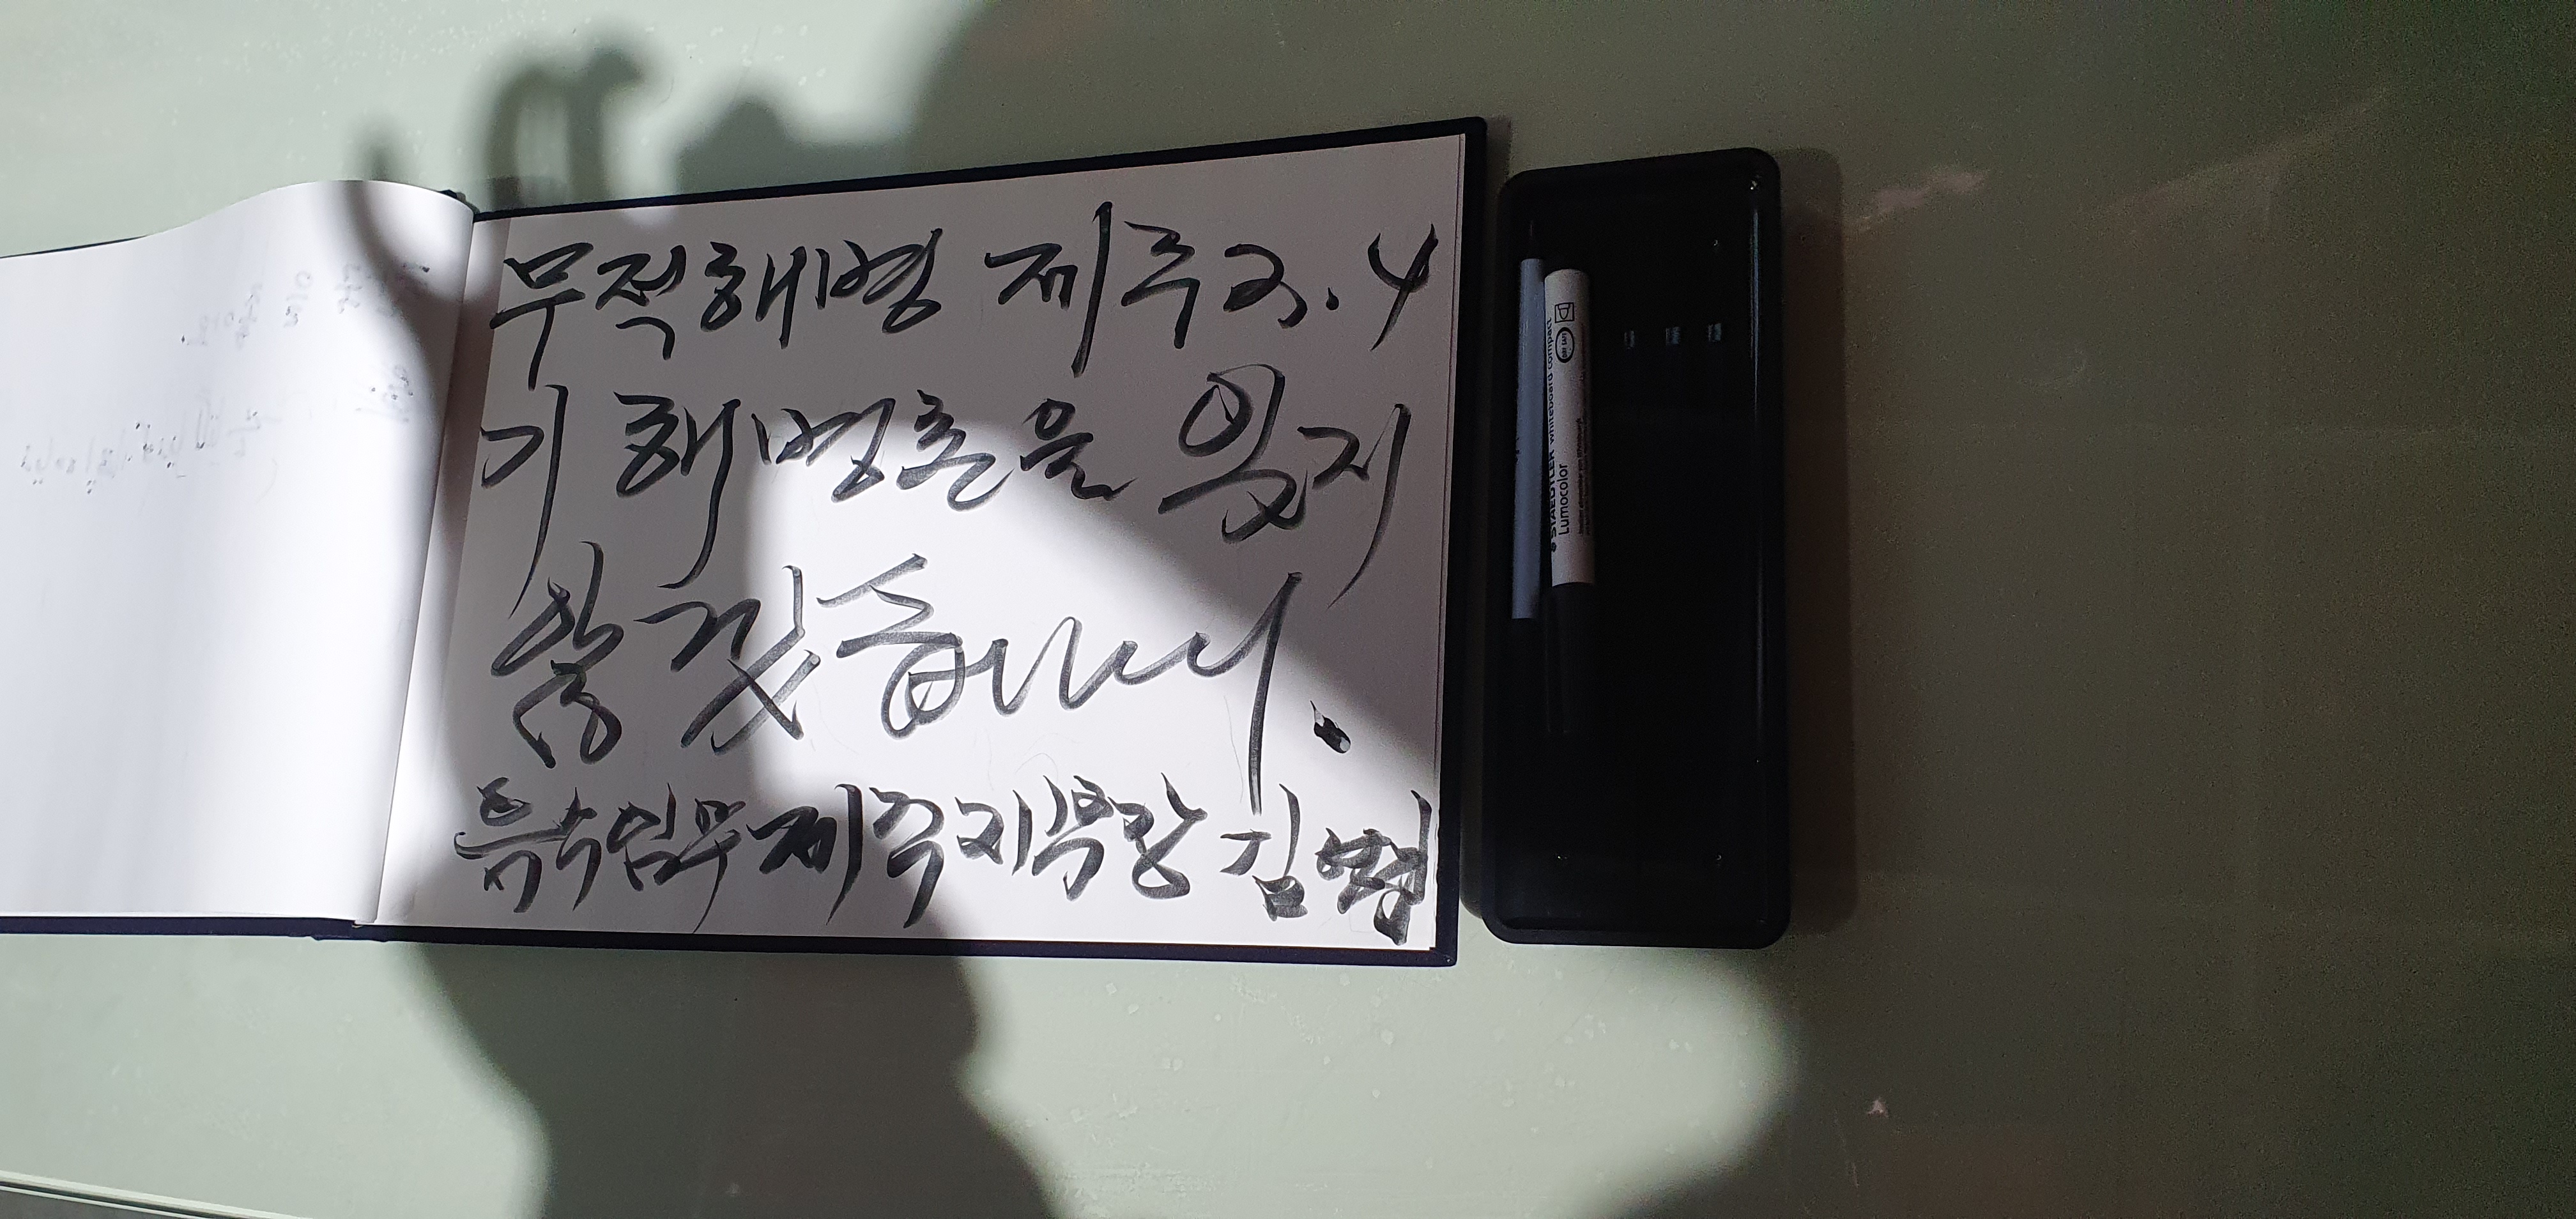 무적해병 제주3.4
기 해병혼을 잊지
않겠습니다.
특수임무제주지부장 김
STAEDTLER whiteboard compact
Lumocolor